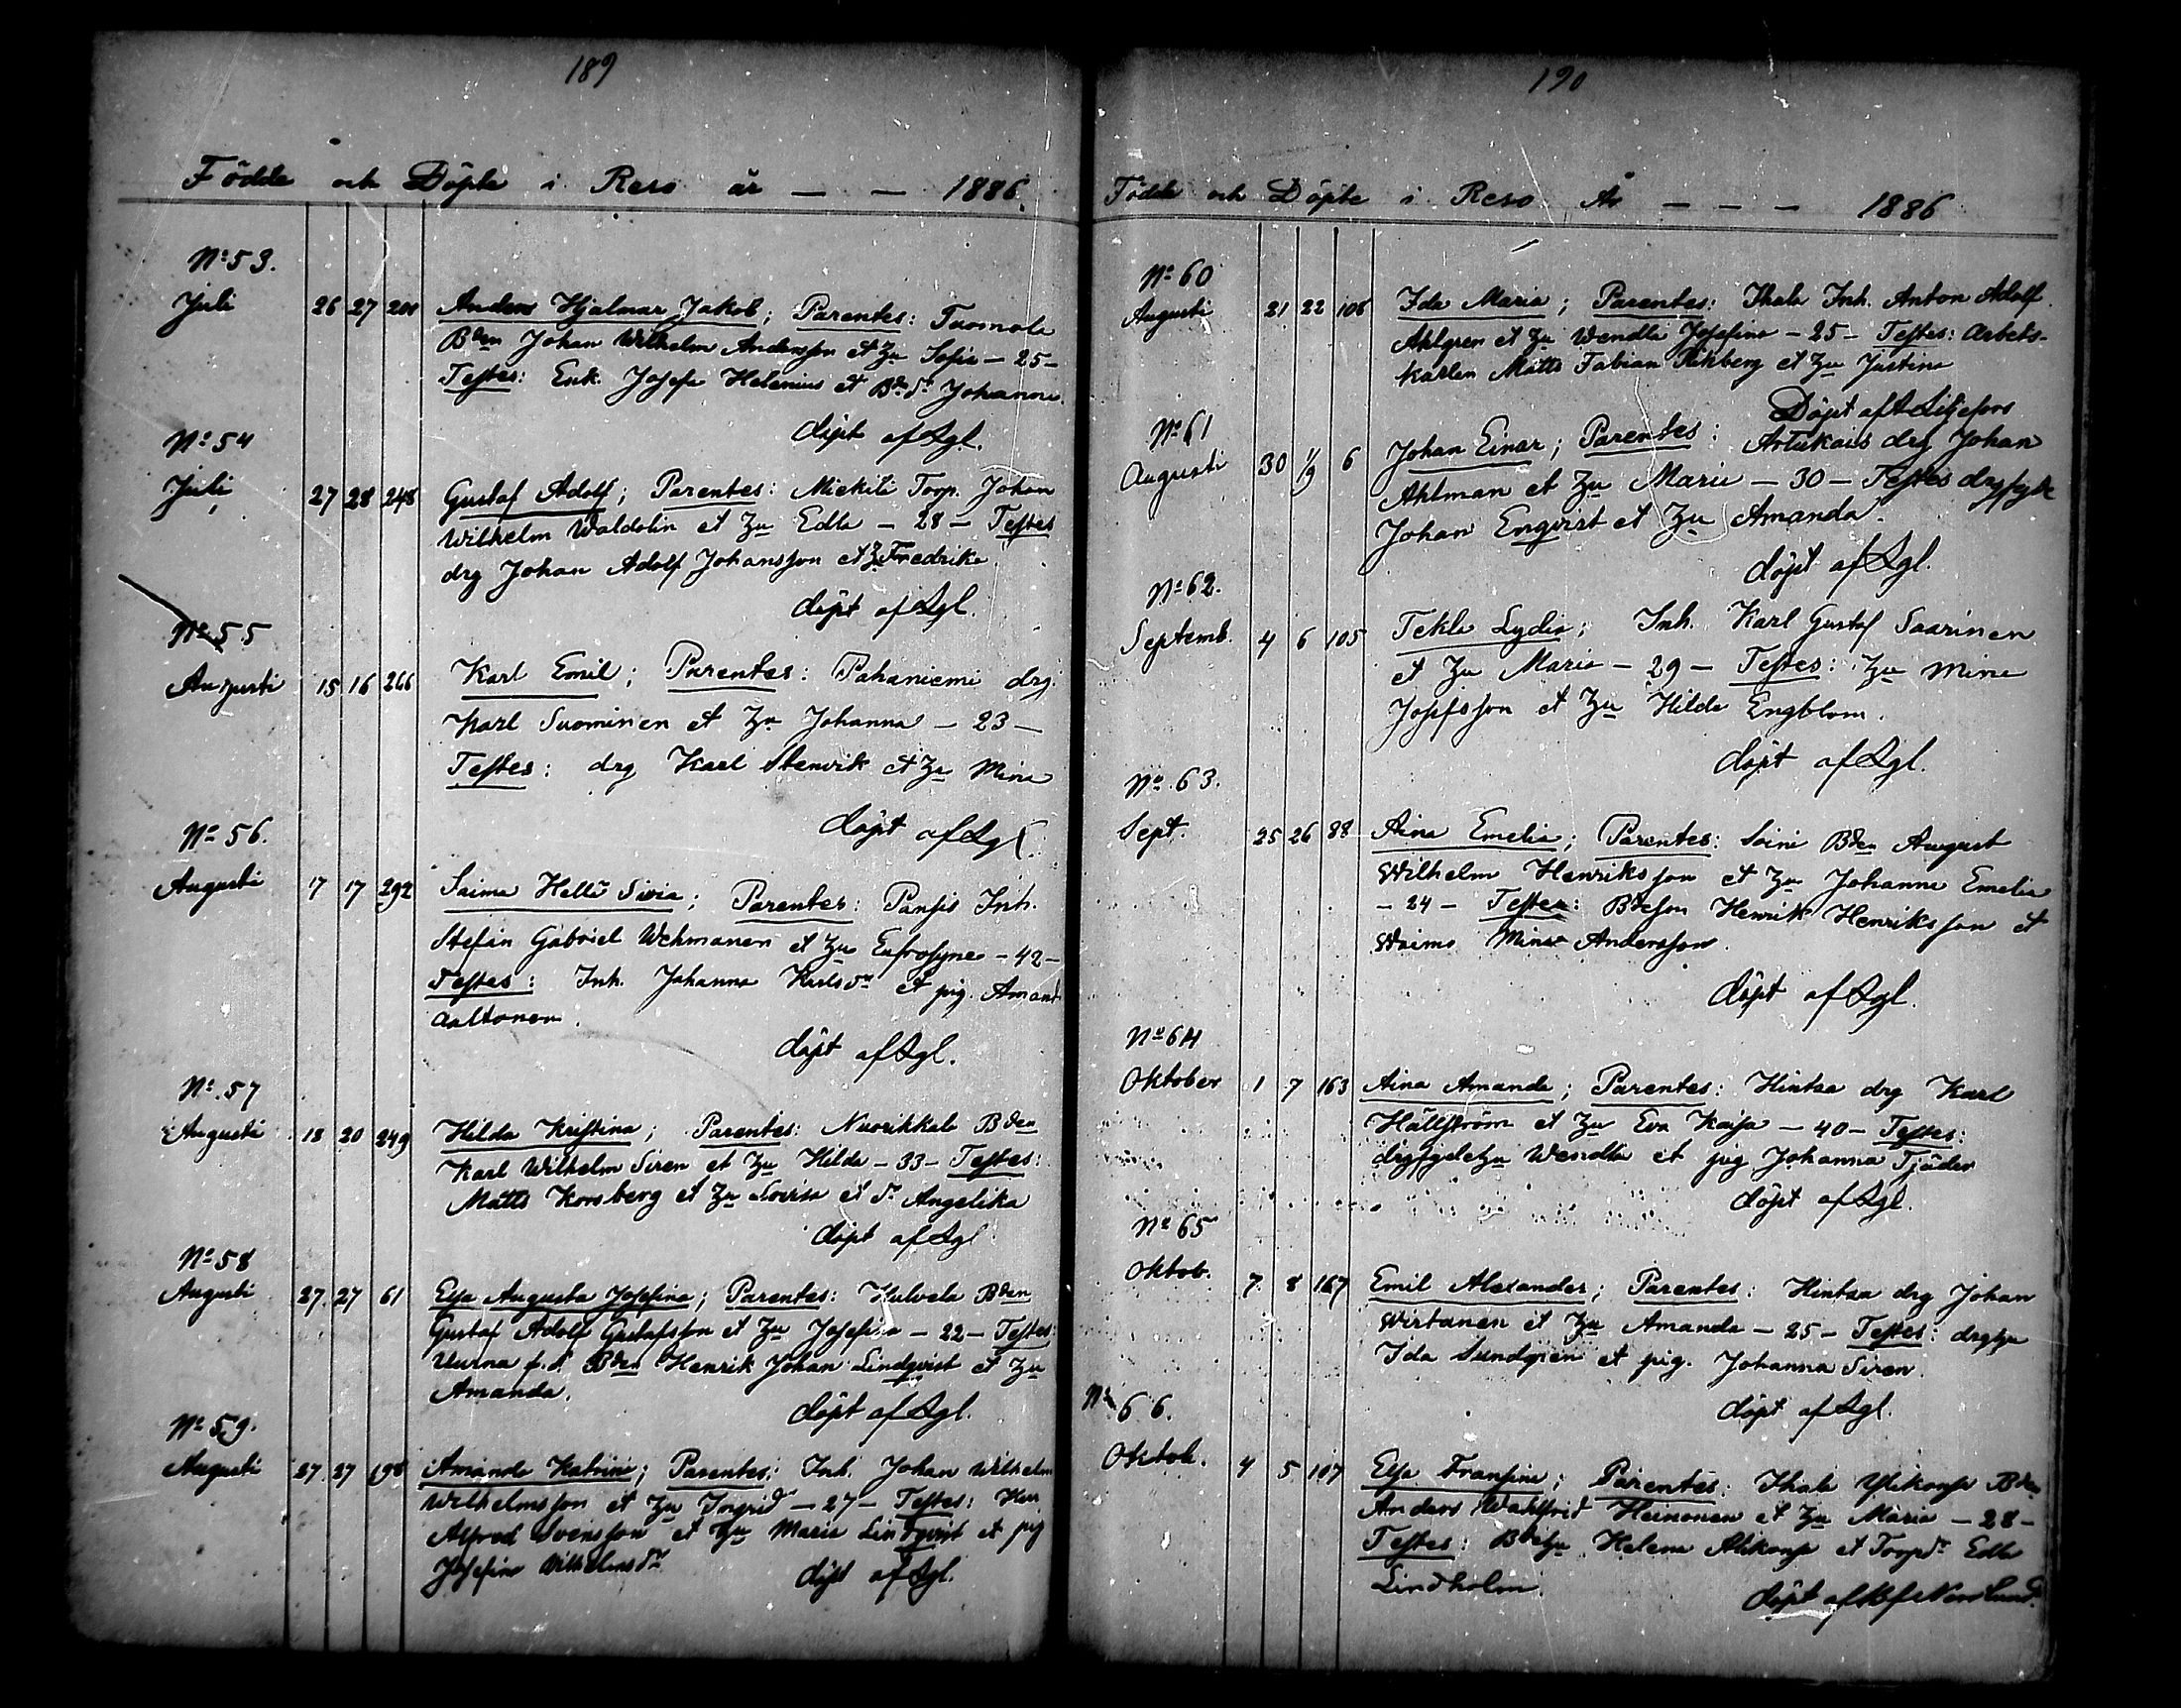 189
Födde och Döpte i Reso år — — 1886.
No 53.
Juli 26 27 201 Anders Hjalmar Jakob; Parentes: Tuomola
Bden Johan Wilhelm Andersson et Zu Sofia — 25 —
Testes: Enk. Josefa Helenius et Bde dr Johanna.
döpt af Lgl.
No 54
Juli 27 28 248 Gustaf Adolf; Parentes: Miekiti Torp. Johan
Wilhelm Waldolin et Zu Edla — 28 — Testes
drg Johan Adolf Johansson et Zu Fredrika.
döpt af Lgl.
No 55
Augusti 15 16 266 Karl Emil; Parentes: Pahaniemi drg.
Karl Suominen et Zu Johanna — 23 —
Testes: drg Karl Stenvik et Zu Mina
döpt af Lgl.
No 56.
Augusti 17 17 292 Saima Hellä Sivia; Parentes: Pansis Inh.
Stefan Gabriel Wehmanen et Zu Eufrosyne — 42 —
Testes: Inh. Johanna Karlsdr et pig. Amand
Aaltonen.
döpt af Lgl.
No 57
Augusti 18 20 249 Hilda Kristina; Parentes: Nuorikkala Bden
Karl Wilhelm Siren et Zu Hilda — 33 — Testes:
Matts Korsberg et Zu Lovisa et dr Angelika
döpt af Lgl
No 58
Augusti 27 27 61 Elsa Augusta Josefina; Parentes: Hulvela Bden
Gustaf Adolf Gustafsson et Zu Josefina — 22 — Testes:
Uurna f.d. Bden Henrik Johan Lindqvist et Zu
Amanda.
döpt af Lgl.
No 59.
Augusti 27 27 198 Amanda Katrina; Parentes: Inh. Johan Wilhelm
Wilhelmsson et Zu Ingrid — 27 — Testes: Herr
Alfred Svensson et Zu Maria Lindqvist et pig
Josefina Wilhelmsdr
döpt af Lgl.
190
Födde och Döpte i Reso År — — — 1886
No 60
Augusti 21 22 106 Ida Maria; Parentes: Ihala Inh. Anton Adolf
Ahlgren et Zu Wendla Josefina — 25 — Testes: Arbets-
karlen Matts Fabian Rikberg et Zu Justina
Döpt af A Liljefors
No 61
Augusti 30 1/9 6 Johan Einar; Parentes: Artukais drg Johan
Ahlman et Zu Maria — 30 — Testes drgfgde
Johan Engvist et Zu Amanda.
döpt af Lgl.
No 62.
Septemb. 4 6 105 Tekla Lydia; Inh. Karl Gustaf Saarinen
et Zu Maria — 29 — Testes: Zu Mina
Josefsson et Zu Hilda Engblom.
döpt af Lgl.
No 63.
Sept. 25 26 88 Aina Emelia; Parentes: Soini Bden August
Wilhelm Henriksson et Zu Johanna Emelia
— 24 — Testes: Bdeson Henrik Henriksson et
Waimo Mina Andersson.
döpt af Lgl.
No 64
Oktober 1 7 163 Aina Amanda; Parentes: Hintsa drg Karl
Hällström et Zu Eva Kaisa — 40 — Testes:
drgfgdeZu Wendla et pig Johanna Tjäder
döpt af Lgl.
No 65
Oktob. 7 8 167 Emil Alexander; Parentes: Hintsa drg Johan
Wirtanen et Zu Amanda — 25 — Testes: drgZu
Ida Sundgren et pig. Johanna Siren.
döpt af Lgl.
No 66.
Oktob. 4 5 107 Elsa Fransina; Parentes: Ihala Ylikonsa Bden
Anders Wahlfrid Heinonen et Zu Maria — 28 —
Testes: BdeZu Helena Alikonsa et Torpdr Edla
Lindholm.
döpt af Norrlund.